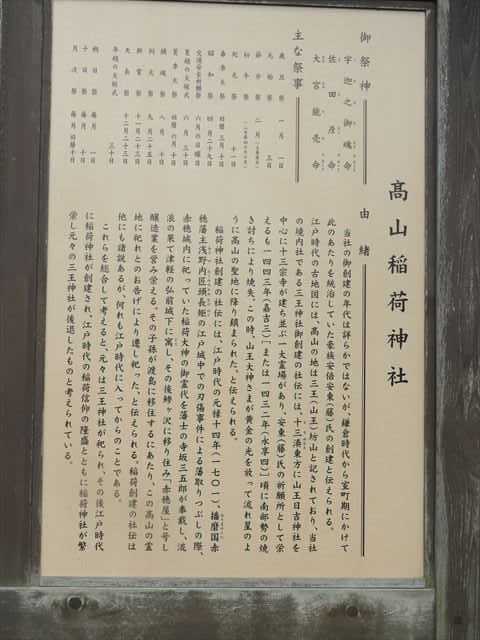 高山稲荷神社
御祭神
宇迦之御魂命
佐田彦命
大宮能売命
由緒
当社の御創建の年代は詳らかではないが、鎌倉時代から室町期にかけて
此のあたりを統治していた豪族安倍安東(藤)氏の創建と伝えられる。
江戸時代の古地図には、高山の地は三王(山王)坊山と記されており、当社
の境内社である三王神社御創建の社伝には、十三湊東方に山王日吉神社を
中心に十三宗寺が建ち並ぶ一大霊場があり、安東(藤)氏の祈願所として栄
えるも一四四三年(嘉吉三)[または一四三二年(永享四)]頃に南部勢の焼
き討ちにより焼失。この時、山王大神さまが黄金の光を放って流れ星のよ
うに高山の聖地に降り鎮まられた、と伝えられる。
稲荷神社創建の社伝には、江戸時代の元禄十四年(一七〇一)、播磨国赤
穂藩主浅野内匠頭長矩の江戸城中での刃傷事件による藩取りつぶしの際、
赤穂城内に祀っていた稲荷大神の御霊代を藩士の寺坂三五郎が奉載し、流
浪の果て津軽の弘前城下に寓し、その後鰺ヶ沢に移り住み「赤穂屋」と号し
醸造業を営み栄える。その子孫が渡島に移住するにあたり、この高山の霊
地に祀れとのお告げにより遷し祀った、と伝えられる。稲荷創建の社伝は
他にも諸説あるが、何れも江戸時代に入ってからのことである。
これらを総合して考えると、元々は三王神社が祀られ、その後江戸時代
に稲荷神社が創建され、江戸時代の稲荷信仰の隆盛とともに稲荷神社が繁
栄し元々の三王神社が後退したものと考えられている。
主な祭事
歳旦祭 一月 一日
元始祭 三日
節分祭 二月
初午祭
紀元祭 十一日
春季大祭 旧暦三月十日
昭和祭 四月二十九日
交通安全祈願祭 六月の日曜日
夏越の大祓式 六月 三十日
夏季大祭 旧暦六月十日
鎮魂祭 八月 十日
例大祭 九月二十五日
新嘗祭 十一月二十三日
天長祭 十二月二十三日
年越の大祓式 三十日
朔日祭 毎月 一日
十日祭 毎月 十日
月次祭 毎月旧暦十日